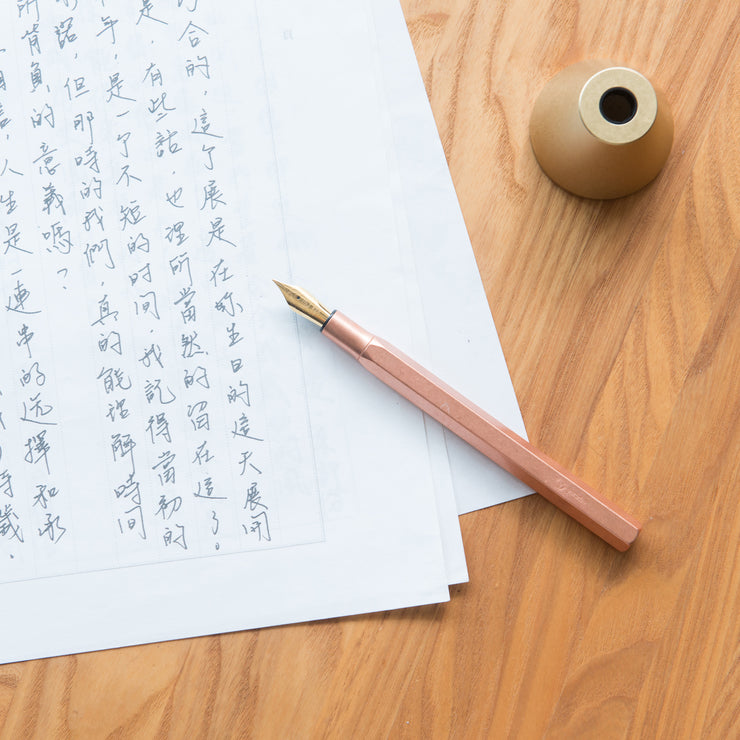 合的，這个展是在妳生日的這天展開
是，有些話，也理所當然的留在這了。
年，是一个不短的时间，我記得當初的
諾，但那時的我們，真的能理解時间
所背負的意義嗎？
人生是一連串的选擇和承